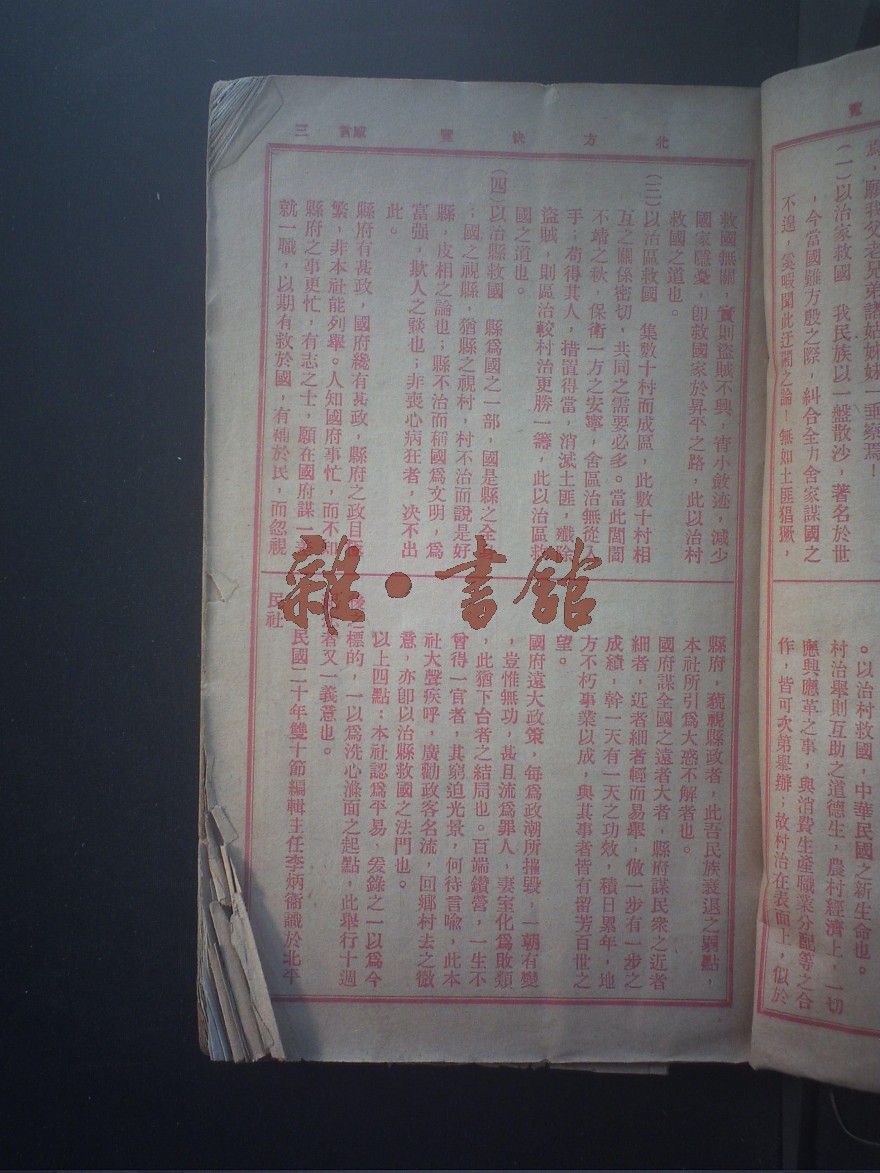 北方快覽
緣言 三
救國無關,實則盜賊不興,宵小斂迹,減少
國家隱憂,卽救國家於昇平之路,此以治村
救國之道也。
(三)以治區救國 集數十村而成區,此數十村相
互之關係密切,共同之需要必多。當此閭閻
不靖之秋,保衛一方之安寧,舍區治無從入
手;苟得其人,措置得當,消滅土匪,殲除
盜賊,則區治較村治更勝一籌,此以治區救
國之道也。
(四)以治縣救國 縣爲國之一部,國是縣之全
;國之視縣,猶縣之視村,村不治而說是好
縣,皮相之論也;縣不治而稱國爲文明,爲
富强,欺人之談也;非喪心病狂者,决不出
此。
縣府有甚政,國府纔有甚政,縣府之政目
繁,非本社能列舉。人知國府事忙,而不知
縣府之事更忙,有志之士,願在國府謀一
就一職,以期有救於國,有補於民,而忽視
縣府,藐視縣政者,此吾民族衰退之弱點,
本社所引爲大惑不解者也。
國府謀全國之遠者大者,縣府謀民衆之近者
細者,近者細者輕而易舉,做一步有一步之
成績,幹一天有一天之功效,積日累年,地
方不朽事業以成,與其事者皆有留芳百世之
望。
國府遠大政策,每爲政潮所摧毀,一朝有變
,豈惟無功,甚且流爲罪人,妻室化爲敗類
,此猶下台者之結局也。百端鑽營,一生不
曾得一官者,其窮迫光景,何待言喩,此本
社大聲疾呼,廣勸政客名流,回鄉村去之微
意,亦卽以治縣救國之法門也。
以上四點:本社認爲平易,爰錄之一以爲今
後之標的,一以爲洗心滌面之起點,此舉行十週
者又一義意也。
民國二十年雙十節編輯主任李炳衞識於北平
民社
覽
焉,願我父老兄弟諸姑姊妹一垂察焉!
(一)以治家救國 我民族以一盤散沙,著名於世
,今當國難方殷之際,糾合全力舍家謀國之
不遑,奚暇聞此迂闊之論!無如土匪猖獗,
。以治村救國,中華民國之新生命也。
村治舉則互助之道德生,農村經濟上,一切
應興應革之事,與消費生產職業分配等之合
作,皆可次第舉辦;故村治在表面上,似於
雜·書館